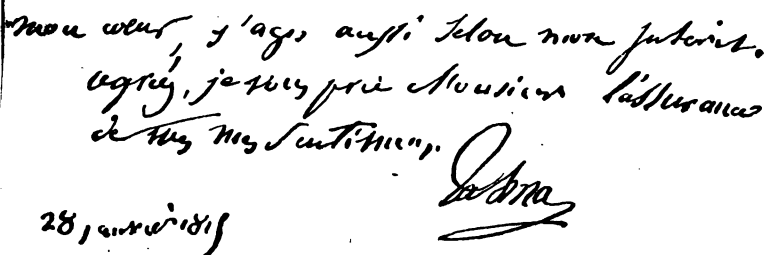 mon cœur, j'agis aussi selon mon intérêt.
agréez, je vous prie Monsieur l'assurance
de tous mes sentimens.
28 janvier 181